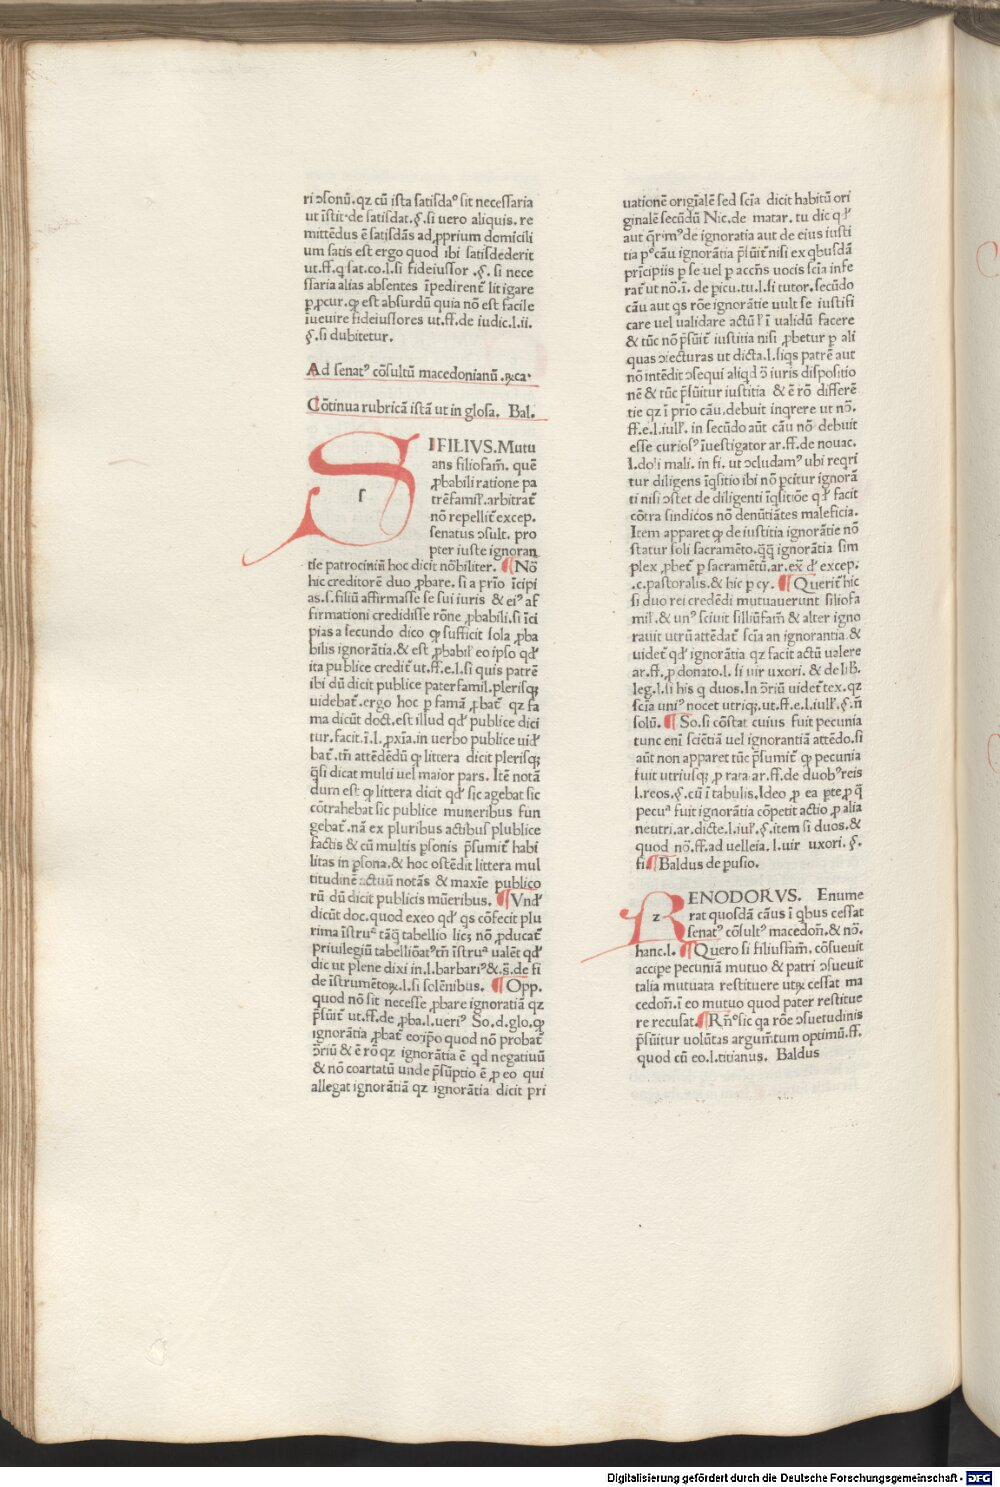 ri ɔsonū.qz cū ista satisdaº sit necessaria
ut īstit·de satisdat.§.si uero aliquis.re
mittēdus ē satisdās ad ꝓprium domicili
um satis est ergo quod ibi satisdederit
ut.ff.q sat.co.l.si fideiussor .§. si nece
ssaria alias absentes īpedirent̄ litigare
ꝑ ꝓcur.ꝙ est absurdū quia nō est facile
īueuire fideiussores ut.ff.de iudic.l.ii.
§.si dubitetur.
Ad senatꝰ cōsultū macedonianū .ꝶca·
Cōtinua rubricā istā ut in glosa. Bal.
SI FILIVS.Mutu
ans filiofam̄. quē
ꝓbabili ratione pa
trēfamiƚ.arbitrat̄
nō repellit̄ excep.
senatus ɔsult. pro
pter iuste ignoran
tie patrociniū hoc dicit nōbiliter. ¶ Nō
hic creditorē duo ꝓbare. si a prīo īcipi
as.s.filiū affirmasse se sui iuris & eiꝰ af
firmationi credidisse rōne ꝓbabili.si īci
pias a secundo dico ꝙ sufficit sola ꝓba
bilis ignorātia.& est ꝓbabiƚ eo ipso qđ
ita publice credit̄ ut.ff.e.l.si quis patrē
ibi dū dicit publice paterfamil.plerisqꝫ
uidebat̄.ergo hoc ꝑ famā ꝓbat̄ qz fa
ma dicūt doct.est illud qđ publice dici
tur.facit.ī.l.ꝓxīa.in uerbo publice uiđ
bat̄.tm̄ attēdēdū ꝙ littera dicit plerisqꝫ
q̄si dicat multi uel maior pars. Itē notā
dum est ꝙ littera dicit qđ sic agebat sic
cōtrahebat sic publice muneribus fun
gebat̄.nā ex pluribus actibus plublice
factis & cū multis ꝑsonis p̄sumit̄ habi
litas in ꝑsona.& hoc ostēdit littera mul
titudinē actuū notās & maxīe publico
rū dū dicit publicis mūeribus. ¶ Vnđ
dicūt doc.quod exeo qđ qs cōfecit plu
rima īstruª tāq̄ tabellio licꝫ nō ꝓducat̄
priuilegiū tabelliōatꝰtm̄ īstruª ualēt qđ
dic ut plene dixi in.l.barbariꝰ&.s̄.de fi
de īstrumētoꝶ.l.si solēnibus. ¶ Opp.
quod nō sit necesse ꝓbare ignoratiā qz
p̄sūit̄ ut.ff.de ꝓba.l.ueriꝰ So.d.glo.ꝙ
ignorātia ꝓbat̄ eo:ipo quod nō probat̄
ɔ̄riū & ē rō qz ignorātia ē qđ negatiuū
& nō coartatū unde p̄sūptio ē ꝓ eo qui
allegat ignorātiā qz ignorātia dicit pri
uationē origīalē sed scīa dicit habitū ori
ginalē secūdū Nic.de matar. tu dic qđ
aut q̄r·mꝰde ignoratia aut de eius iusti
tia pºcāu ignorātia p̄sūit̄ nisi ex qbusdā
prīcipiis ꝑ se uel ꝑ accn̄s uocis scīa infe
rat̄ ut nō.ī. de picu.tu.l.si tutor.secūdo
cāu aut qs rōe ignorātie uult se iustifi
care uel ualidare actū ƚ ī ualidū facere
& tūc nō p̄sūit̄ iustitia nisi ꝓbetur ꝑ ali
quas ɔiecturas ut dicta.l.siqs patrē aut
nō intēdit ɔsequi aliqđ ɔ̄ iuris dispositio
nē & tūc p̄sūitur iustitia & ē rō differē
tie qz ī prīo cāu.debuit inqrere ut nō.
ff.e.l.iulƚ. in secūdo aūt cāu nō debuit
esse curiosꝰ īuestigator ar.ff.de nouac.
l.doli mali. in fi. ut ɔcludamꝰ ubi reqri
tur diligens īqsitio ibi nō ꝑcitur ignorā
ti nisi ɔstet de diligenti īqsitiōe qđ facit
cōtra sindicos nō denūtiātes maleficia.
Item apparet ꝙ de iustitia ignorātie nō
statur soli sacramēto.q̄q̄ ignorātia sim
plex ꝓbet̄ ꝑ sacramētū.ar.ex̄ đ excep.
.c.pastoralis.& hic ꝑ cy. ¶ Querit̄ hic
si duo rei credēdi mutuauerunt filiofa
miƚ. & unꝰ sciuit filliūfam̄ & alter igno
rauit utrū attēdat̄ scīa an ignorantia.&
uidet̄ qđ ignorātia qz facit actū ualere
ar.ff.ꝓ donato.l. si uir uxori. & de liƀ.
leg.l.si his q duos.In ɔ̄riū uidet̄ tex.qz
scīa uniꝰ nocet utriqꝫ.ut.ff.e.l.iulƚ.§.n̄
solū. ¶ So.si cōstat cuius fuit pecunia
tunc enī sciētiā uel ignorantiā attēdo.si
aūt non apparet tūc p̄sumit̄ ꝙ pecunia
fuit utriusqꝫ ꝓ rara ar.ff.de duobꝰreis
l.reos.§.cū ī tabulis.Ideo ꝓ ea ꝑte ꝓ q̄
pecuª fuit ignorātia cōpetit actio ꝓ alia
neutri.ar.dicte.l.iuƚ.§.item si duos.&
quod nō.ff.ad uelleia.l.uir uxori. §.
fi.¶ Baldus de ꝑusio.
ZENODORVS. Enume
rat quosdā cāus ī qbus cessat
senatꝰ cōsultꝰ macedoñ.& nō.
hanc.l. ¶ Quero si filiusfam̄. cōsueuit
accipe pecuniā mutuo & patri ɔsueuit
talia mutuata restituere utꝶ cessat ma
cedoñ.ī eo mutuo quod pater restitue
re recusat.¶ Rn̄ºsic qa rōe ɔsuetudinis
p̄sūitur uolūtas argum̄tum optimū.ff.
quod cū eo.l.titianus. Baldus
Digitalisierung gefördert durch die Deutsche Forschungsgemeinschaft - DFG